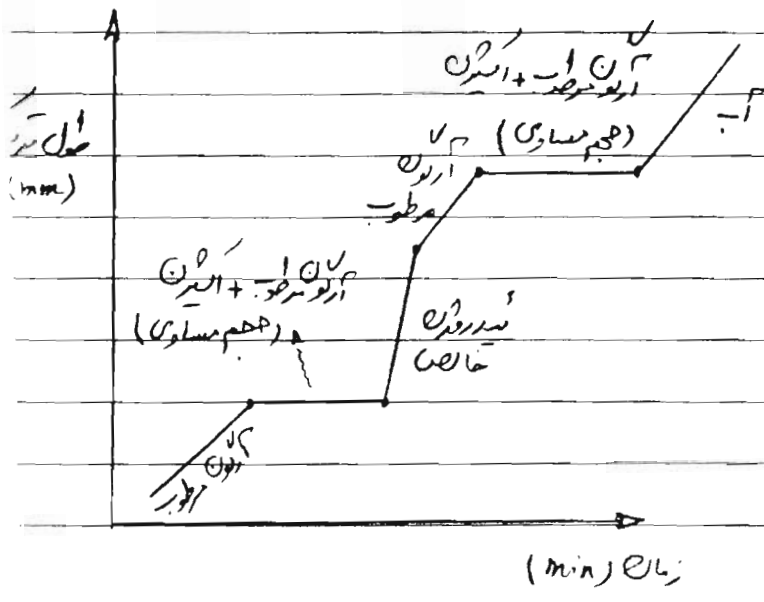 آرگون مرطوب + اکسیژن
(حجم مساوی)
آب
طول ترک
(mm)
آرگون
مرطوب
آرگون مرطوب + اکسیژن
(حجم مساوی)
هیدروژن
خالص
آرگون
مرطوب
زمان (min)